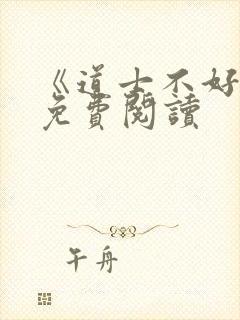 《道士不好
免費閱讀
午舟